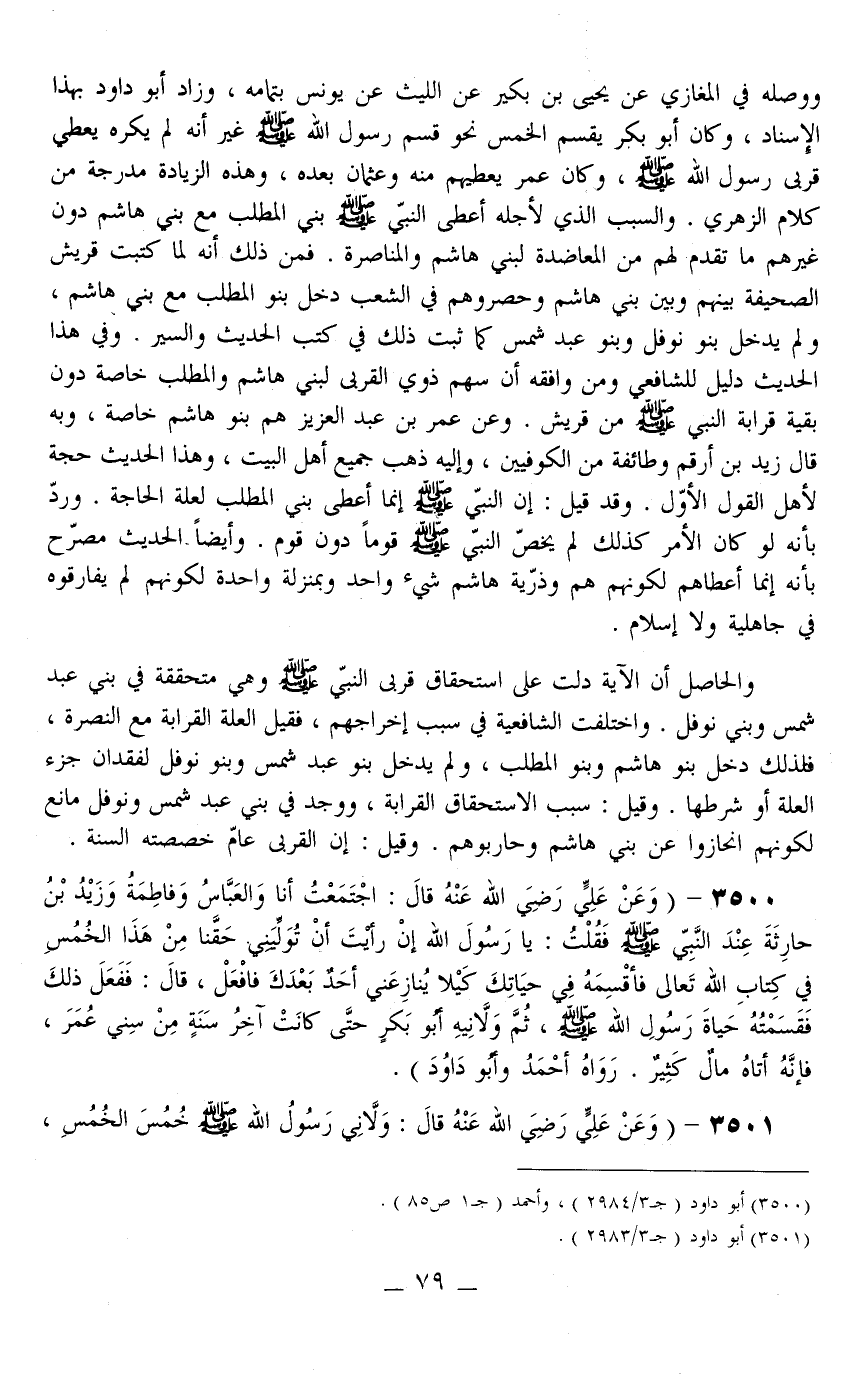 ووصله في المغازي عن يحيى بن بكير عن الليث عن يونس بتمامه ، وزاد أبو داود بهذا
الإسناد ، وكان أبو بكر يقسم الخمس نحو قسم رسول الله ﷺ غير أنه لم يكره يعطي
قربى رسول الله ﷺ ، وكان عمر يعطيهم منه وعثمان بعده ، وهذه الزيادة مدرجة من
كلام الزهري . والسبب الذي لأجله أعطى النبيّ ﷺ بني المطلب مع بني هاشم دون
غيرهم ما تقدم لهم من المعاضدة لبني هاشم والمناصرة . فمن ذلك أنه لما كتبت قريش
الصحيفة بينهم وبين بني هاشم وحصروهم في الشعب دخل بنو المطلب مع بني هاشم ،
ولم يدخل بنو نوفل وبنو عبد شمس كما ثبت ذلك في كتب الحديث والسير . وفي هذا
الحديث دليل للشافعي ومن وافقه أن سهم ذوي القربى لبني هاشم والمطلب خاصة دون
بقية قرابة النبي ﷺ من قريش . وعن عمر بن عبد العزيز هم بنو هاشم خاصة ، وبه
قال زيد بن أرقم وطائفة من الكوفيين ، وإليه ذهب جميع أهل البيت ، وهذا الحديث حجة
لأهل القول الأوّل . وقد قيل : إن النبيّ ﷺ إنما أعطى بني المطلب لعلة الحاجة . وردّ
بأنه لو كان الأمر كذلك لم يخصّ النبيّ ﷺ قوماً دون قوم . وأيضاً الحديث مصرّح
بأنه إنما أعطاهم لكونهم هم وذرّية هاشم شيء واحد وبمنزلة واحدة لكونهم لم يفارقوه
في جاهلية ولا إسلام .
والحاصل أن الآية دلت على استحقاق قربى النبيّ ﷺ وهي متحققة في بني عبد
شمس وبني نوفل . واختلفت الشافعية في سبب إخراجهم ، فقيل العلة القرابة مع النصرة ،
فلذلك دخل بنو هاشم وبنو المطلب ، ولم يدخل بنو عبد شمس وبنو نوفل لفقدان جزء
العلة أو شرطها . وقيل : سبب الاستحقاق القرابة ، ووجد في بني عبد شمس ونوفل مانع
لكونهم انحازوا عن بني هاشم وحاربوهم . وقيل : إن القربى عامّ خصصته السنة .
٣٥٠٠ - ( وَعَنْ عَلِيٍّ رَضِيَ الله عَنْهُ قالَ : اجْتَمَعْتُ أنا وَالعَبَّاسُ وَفاطِمَةُ وَزَيْدُ بْنُ
حارِثَةَ عِنْدَ النَّبِيّ ﷺ فَقُلْتُ : يا رَسُولَ الله إنْ رأيْتَ أنْ تُوَلِّيَنِي حَقَّنا مِنْ هَذَا الخُمُسِ
في كِتابِ الله تَعالى فأقْسِمَهُ فِي حَيَاتِكَ كَيْلا يُنازِعَني أحَدٌ بَعْدَكَ فافْعَلْ ، قالَ : فَفَعَلَ ذلكَ
فَقَسَمْتُهُ حَياةَ رَسُولِ الله ﷺ ، ثُمَّ وَلَّانِيهِ أبُو بَكرٍ حتَّى كانَتْ آخِرُ سَنَةٍ مِنْ سِني عُمَرَ ،
فإنَّهُ أتاهُ مالٌ كَثِيرٌ . رَوَاهُ أحْمَدُ وأبُو دَاوُدَ ) .
٣٥٠١ - ( وَعَنْ عَلِيٍّ رَضِيَ الله عَنْهُ قالَ : وَلَّانِي رَسُولُ الله ﷺ خُمُسَ الخُمُسِ ،
(٣٥٠٠) أبو داود ( جـ٢٩٨٤/٣ ) ، وأحمد ( جـ١ ص٨٥ ) .
(٣٥٠١) أبو داود ( جـ٢٩٨٣/٣ ) .
ـ ٧٩ ـ